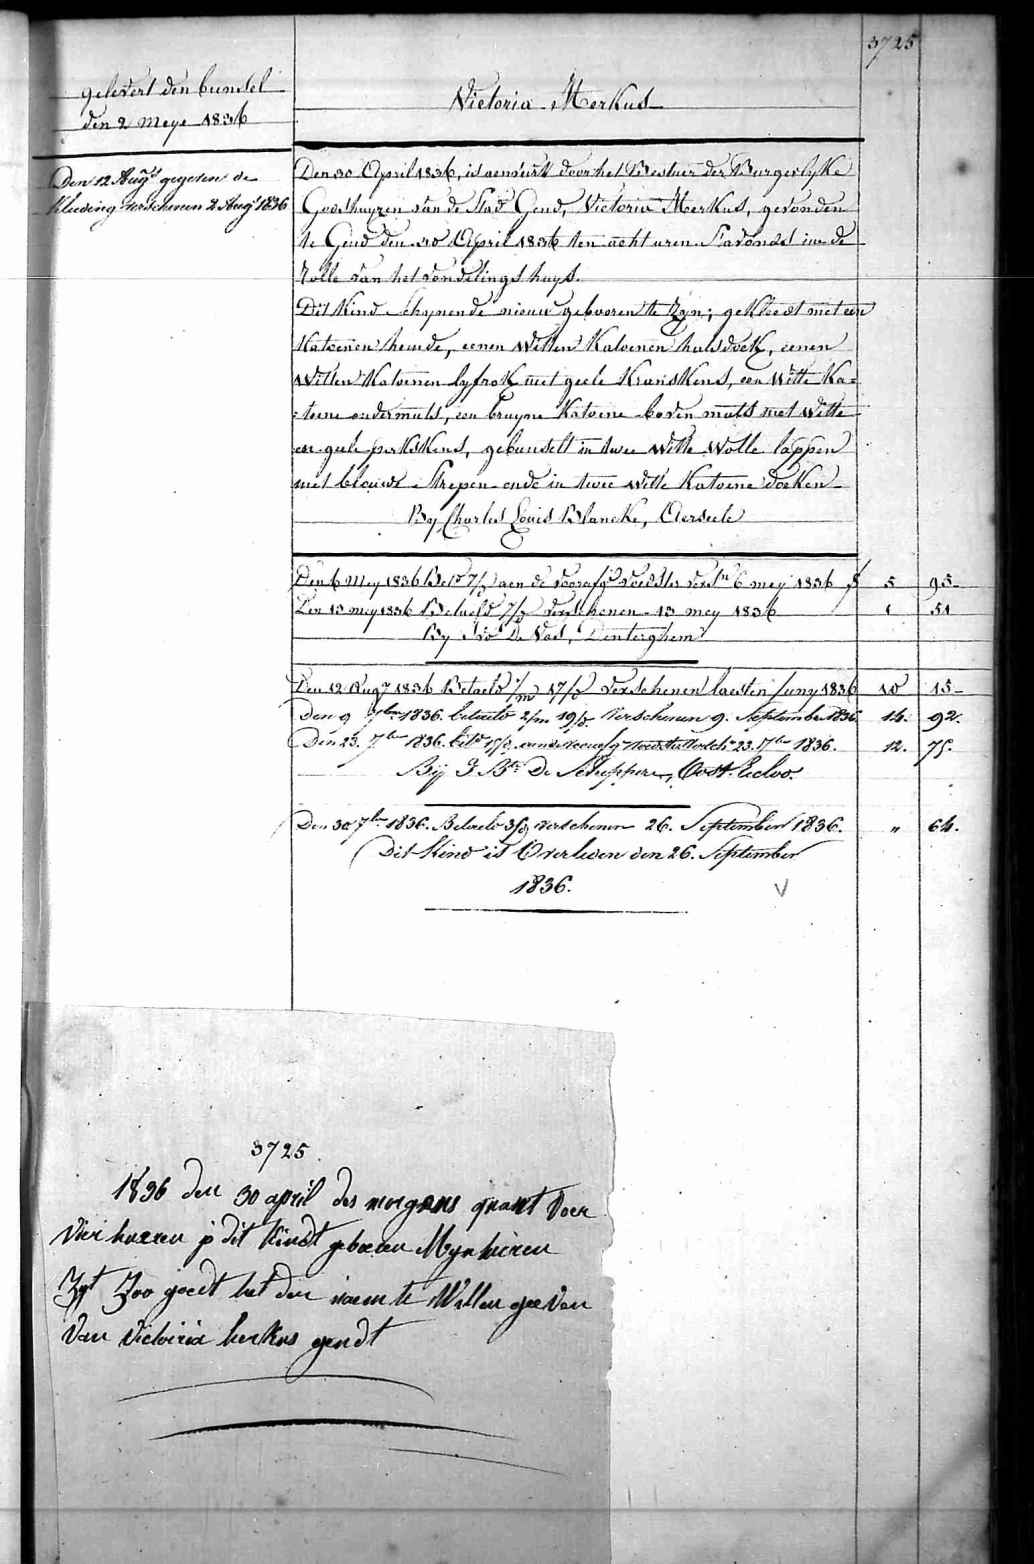 3725
gelevert den bunsel
den 2 Meye 1836
Victoria Merkus
Den 12 Augt gegeven de
kleeding verschenen 2 Augt 1836
Den 30 April 1836, is aenveirt door het Bestuer der Burgerlyke
Godshuyzen van de Stad Gend, Victoria Merkus, gevonden
te Gend den 30 April 1836 ten acht uren s'avonds in de
rolle van het vondelingshuys.
Dit kind schynende nieuw gebooren te zyn; gekleedt met een
katoenen hemde, eenen witten katoenen halsdoek, eenen
witten katoenen lyfrok met geele kranskens, een witte ka=
=toene ondermuts, een bruyne katoene boven muts met witte
en geele perkskens, gebunselt in twee witte wolle lappen
met blauwe strepen ende in twee witte katoene doeken
By Charles Louis Blancke, Aerseele
Den 6 Mey 1836 Betd 7/ aen de voorafge voedster versn 6 mey 1836 f 5 95
Den 13 mey 1836 Betaeld 7/ verschenen 13 mey 1836 1 51
By De Vos, Denterghem
Den 12 Augt 1836 Betaeld 1/m 17/ verschenen laesten Juny 1836 10 15
Den 9 7ber 1836. betaeld 2/m 19/ verschenen 9. September 1836. 14. 92.
Den 23. 7ber 1836. betd 15/ aen de voorafg voedster versch 23. 7ber 1836. 12. 75.
Bij J. Bte De Schepper, Oost Eecloo.
Den 30 7ber 1836. Betaeld 3/ verschenen 26. September 1836. " 64.
Dit kind is Overleden den 26. September
1836.
3725
1836 den 30 april des morgens quart voor
vier hueren is dit kindt geboren Mynheeren
Zyt Zoo goedt het den naem te Willen geeven
Van Victoiria kerkus gendt